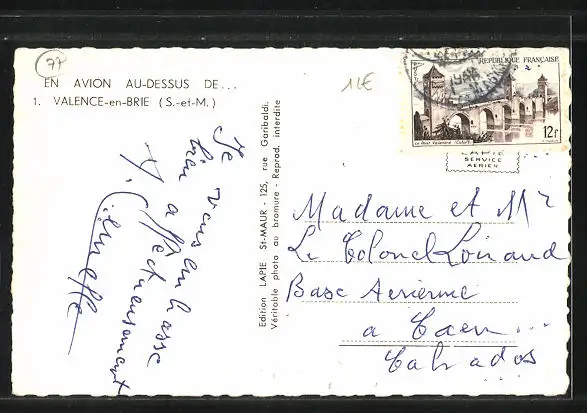 77
EN AVION AU-DESSUS DE...
1. VALENCE-en-BRIE (S.-et-M.)
12€
Je vous embrasse
bien affectueusement
Edition LAPIE St-MAUR - 125, rue Garibaldi.
Véritable photo au bromure - Reprod. interdite
REPUBLIQUE FRANÇAISE
POSTES
Le Pont Valentré (Cahors)
12f
LAPIE
SERVICE
AERIEN
Madame et Mr
Le Colonel Loiraud
Base Aerienne
a Caen...
Calvados